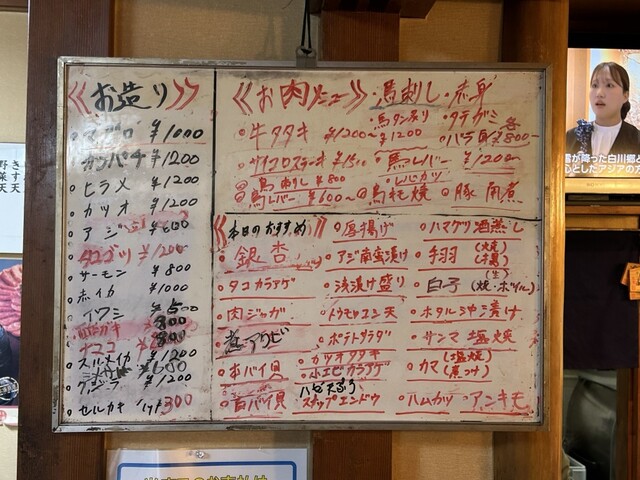 お造り
マグロ ¥1000
カンパチ ¥1200
ヒラメ ¥1200
カツオ ¥1200
アジ ¥600
タコブツ ¥1200
サーモン ¥800
ホイカ ¥1000
イワシ ¥500
酢ガキ ¥800
ナマコ
スルメイカ ¥1200
クジラ ¥1200
セルカキ 1ケ ¥300
お肉メニュー ・馬刺し・赤身
・馬タン炙り ・タテガミ
牛タタキ ¥1200~ ¥1200 ・バラ 各¥800-
サイコロステーキ ¥1500 馬レバー ¥1200-
鳥刺し ¥800 レバカツ
鳥レバー ¥600~ 鳥もも焼 豚角煮
本日のおすすめ
銀杏
タコカラアゲ
肉ジャガ
煮アワビ
お バイ貝
白バイ貝
厚揚げ
アジ南蛮漬け
浅漬け盛り
トウモロコシ天
ポテトサラダ
カツオタタキ
小エビカラアゲ
ハゼ天ぷら
スナップエンドウ
ハマグリ酒蒸し
手羽 (焼) (揚)
白子 (生) (焼・ポン酢)
ホタルイカ沖漬け
サンマ塩焼
カマ (塩焼) (煮つけ)
ハムカツ
アンキモ
雪が降った白川郷
心としたアジアの方
きす天
野菜天